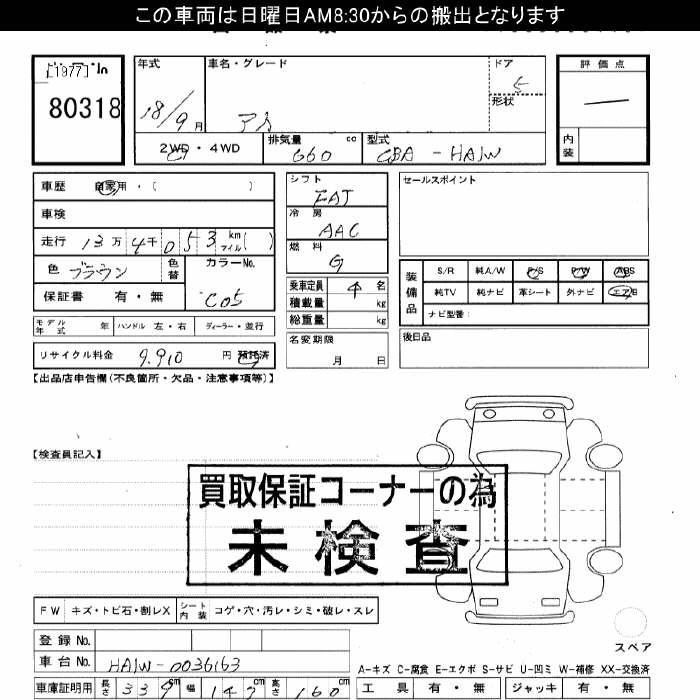 この車両は日曜日AM8:30からの搬出となります
[1977]
80318
年式
18/9月
車名・グレード
アイ
ドア
5
形状
評価点
内装
2WD・4WD
排気量 660 cc
型式 CBA-HA1W
車歴 自家用・( )
車検
走行 13万4千053km マイル( )
色 ブラウン 色替
カラーNo. C05
保証書 有・無
シフト
FAT
冷房
AAC
燃料
G
乗車定員 4 名
積載量 kg
総重量 kg
セールスポイント
装備品
S/R 純A/W P/S P/W ABS
純TV 純ナビ 革シート 外ナビ エアB
ナビ型番:
モデル年式 年 ハンドル 左・右 ディーラー・並行
名変期限
月 日
後日品
リサイクル料金 9,910 円 預託済
【出品店申告欄(不良箇所・欠品・注意事項等)】
【検査員記入】
買取保証コーナーの為
未検査
FW キズ・トビ石・割レX シート内装 コゲ・穴・汚レ・シミ・破レ・スレ
スペア
登録No.
車台No. HA1W-0036163
A-キズ C-腐食 E-エクボ S-サビ U-凹ミ W-補修 XX-交換済
車庫証明用 長さ 339cm 幅 147cm 高さ 160cm
工具 有・無 ジャッキ 有・無